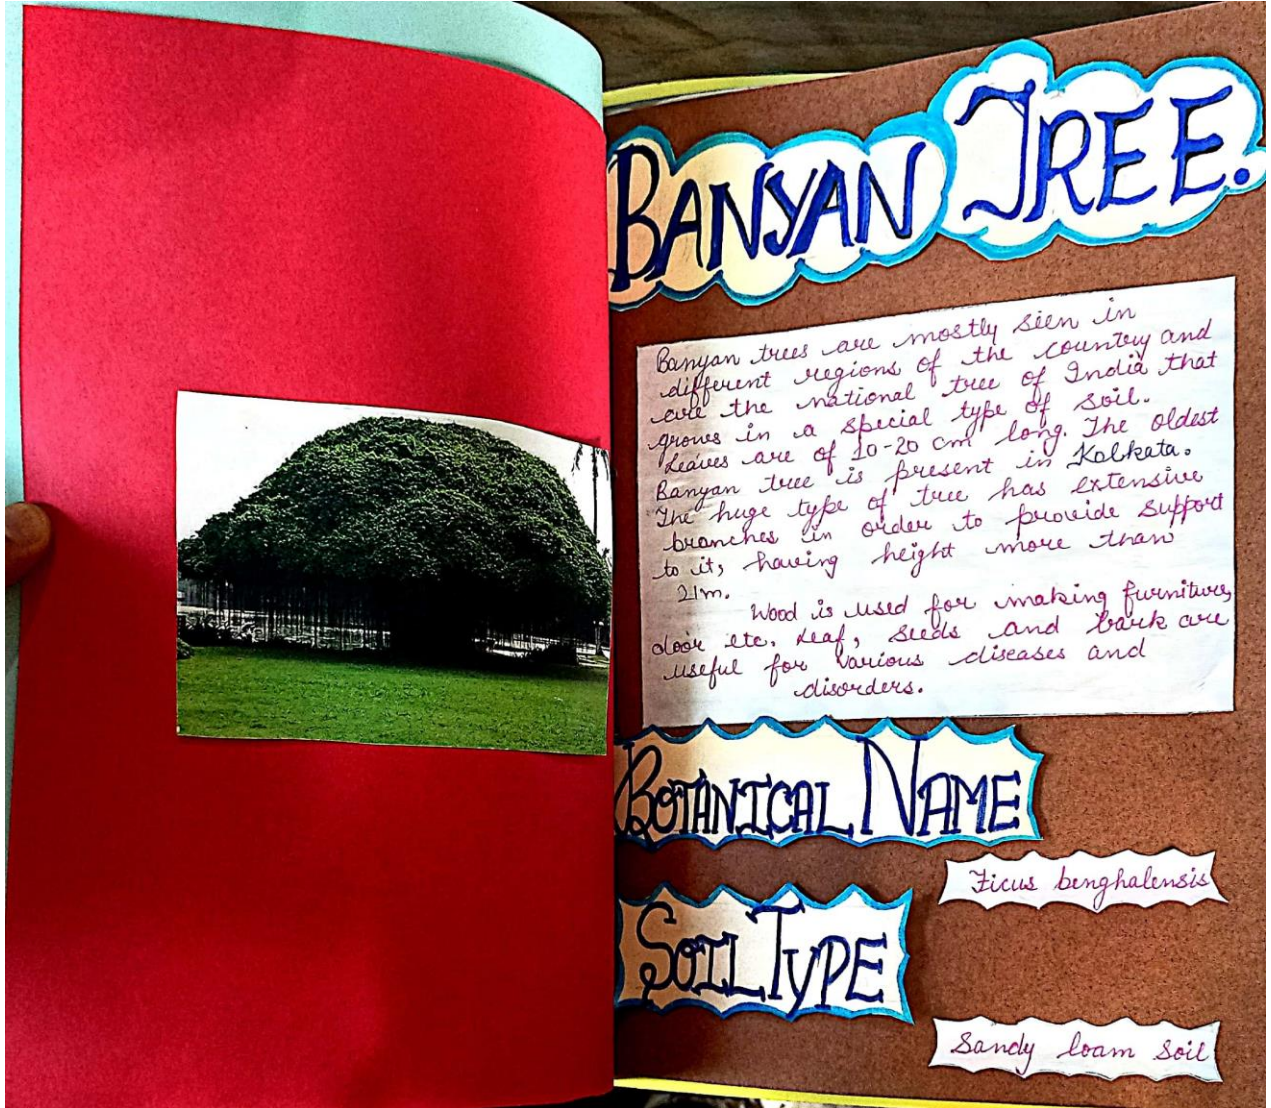 BANYAN TREE.
Banyan trees are mostly seen in
different regions of the country and
are the national tree of India that
grows in a special type of soil.
Leaves are of 10-20 cm long. The oldest
Banyan tree is present in Kolkata.
The huge type of tree has extensive
branches in order to provide support
to it, having height more than
21m.
Wood is used for making furniture,
door etc. Leaf, seeds and bark are
useful for various diseases and
disorders.
BOTANICAL NAME
Ficus benghalensis
SOIL TYPE
Sandy loam soil